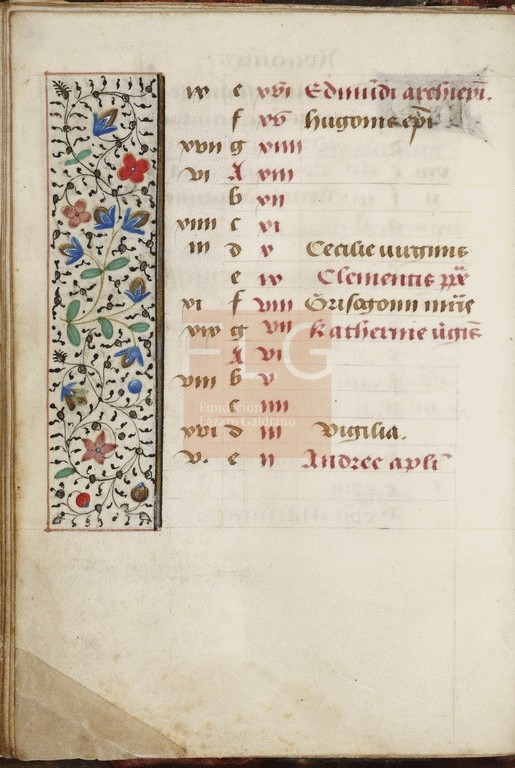 e xvi Edmundi archiepi.
f xv hugonis epi
xviii g xiiii
vi A xiii
b xii
xiiii c xi
iii d x Cecilie uirginis
e ix Clementis pp̄e
xi f viii Grisogoni mr̄is
xix g vii Katherine ūgis
A vi
viii b v
iiii
xvi d iii Vigilia.
v. e ii Andree apl̄i
FLG
Fundación
Lázaro Galdiano